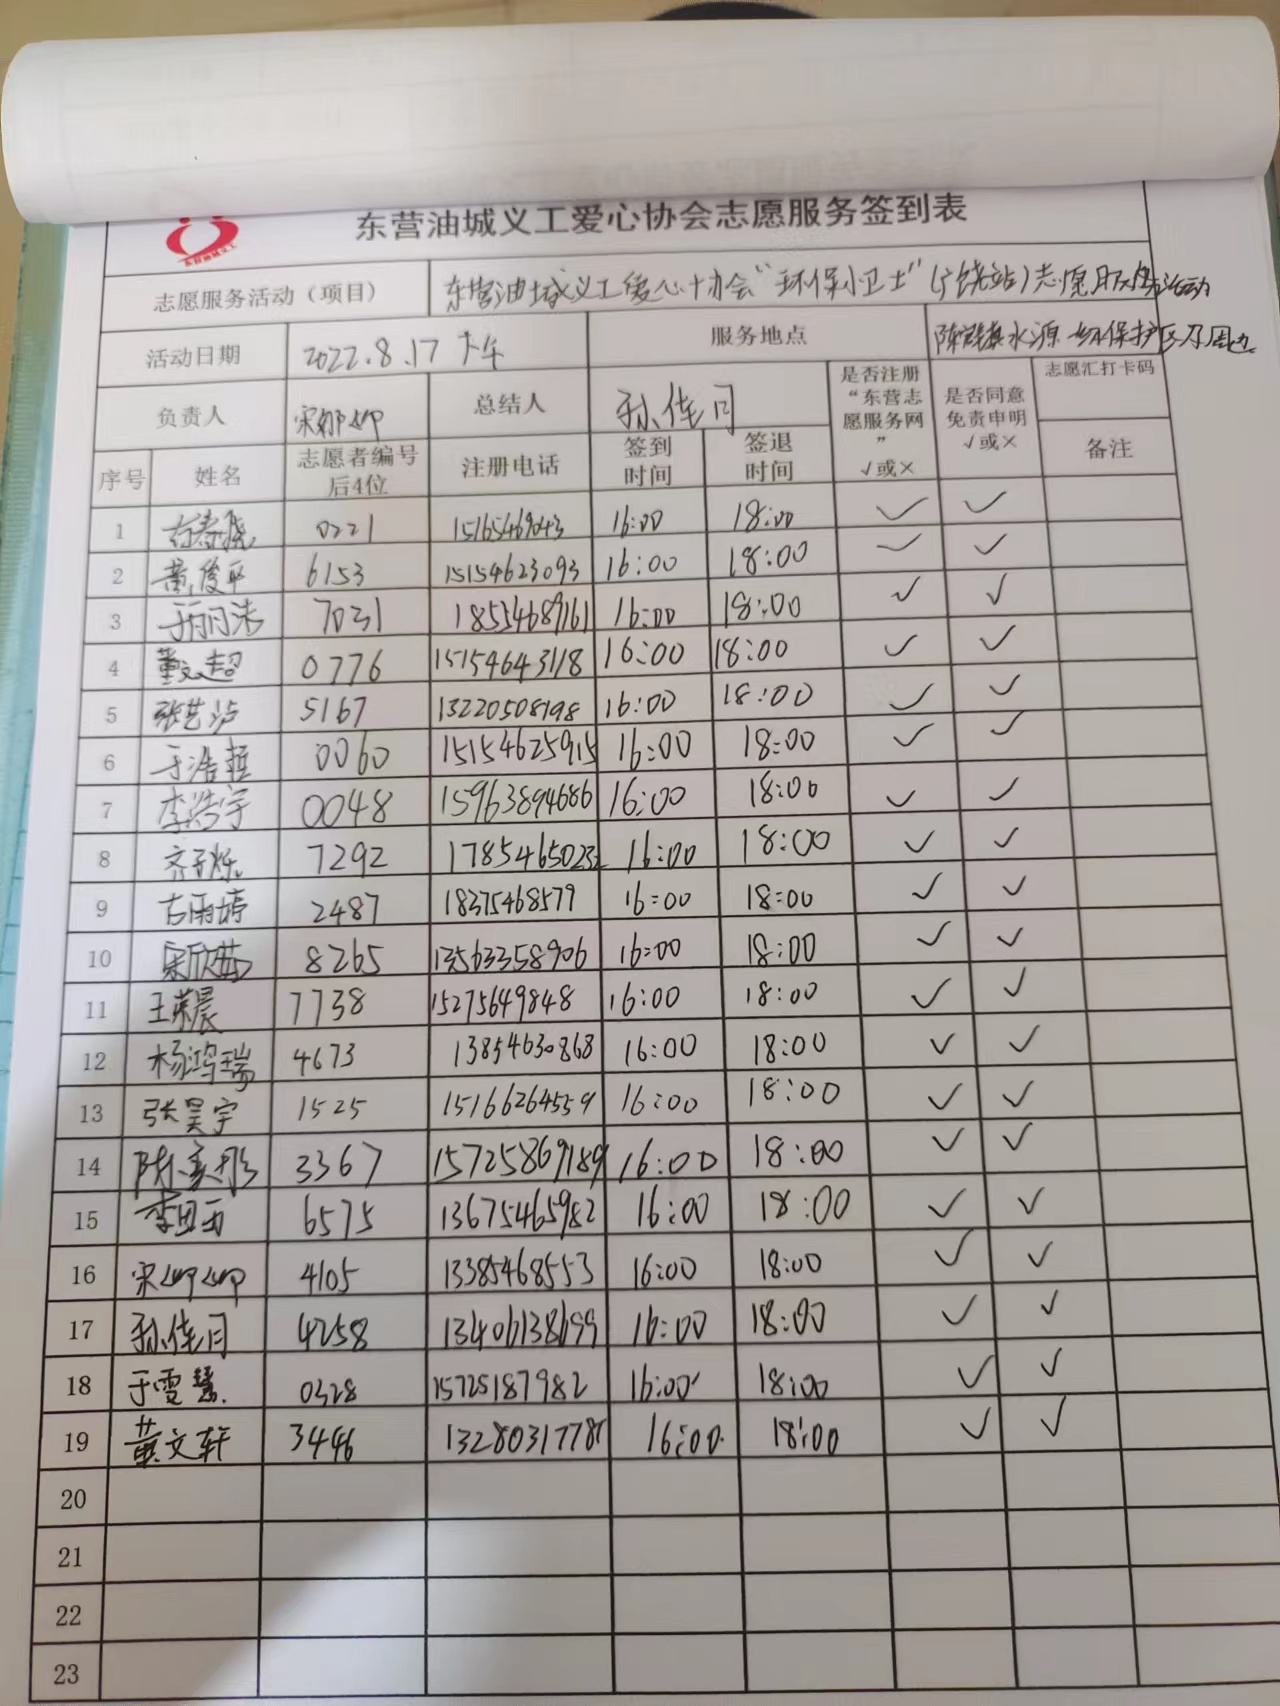 东营油城义工爱心协会志愿服务签到表
志愿服务活动（项目） 东营油城义工爱心协会“环保小卫士”（广饶站）志愿服务活动
活动日期 2022.8.17 下午 服务地点 水源 保护区及周边
负责人 宋 总结人 孙佳 是否注册“东营志愿服务网”√或× 是否同意免责申明√或× 志愿汇打卡码
序号 姓名 志愿者编号后4位 注册电话 签到时间 签退时间 备注
1 0221 15165469043 16:00 18:00 ✓ ✓
2 黄俊平 6153 15154623093 16:00 18:00 ✓ ✓
3 7031 18554689161 16:00 18:00 ✓ ✓
4 董文超 0776 15154643118 16:00 18:00 ✓ ✓
5 张艺 5167 13220508198 16:00 18:00 ✓ ✓
6 于浩 0060 15154625915 16:00 18:00 ✓ ✓
7 李浩宇 0048 15963894686 16:00 18:00 ✓ ✓
8 齐子烁 7292 1785465023 16:00 18:00 ✓ ✓
9 古雨婷 2487 18375468579 16:00 18:00 ✓ ✓
10 宋欣茹 8265 13563358906 16:00 18:00 ✓ ✓
11 王荣晨 7738 15275649848 16:00 18:00 ✓ ✓
12 杨鸿瑞 4673 13854630868 16:00 18:00 ✓ ✓
13 张昊宇 1525 15166264559 16:00 18:00 ✓ ✓
14 陈美彤 3367 15725869189 16:00 18:00 ✓ ✓
15 李 6575 13675465982 16:00 18:00 ✓ ✓
16 宋 4105 13385468553 16:00 18:00 ✓ ✓
17 孙佳 4258 13406138699 16:00 18:00 ✓ ✓
18 于雪慧 0328 15725187982 16:00 18:00 ✓ ✓
19 黄文轩 3446 1328031778 16:00 18:00 ✓ ✓
20
21
22
23